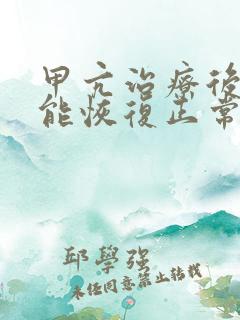 甲亢治療後
能恢復正常
邱學強
未任同意禁止轉載